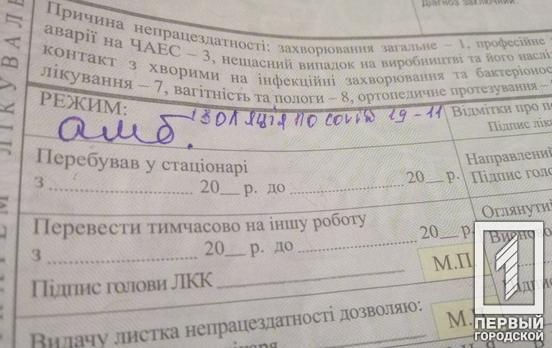 Діагноз заключний
Причина непрацездатності: захворювання загальне – 1, професійне
аварії на ЧАЕС – 3, нещасний випадок на виробництві та його наслі
контакт з хворими на інфекційні захворювання та бактеріонос
лікування – 7, вагітність та пологи – 8, ортопедичне протезування –
РЕЖИМ:
амб. ізоляція по covid 19 - 11
Відмітки про п
Підпис ліка
Перебував у стаціонарі
з ............ 20__ р. до ............ 20__ р.
Направлений
Підпис голо
Перевести тимчасово на іншу роботу
з ............ 20__ р. до ............ 20__ р.
Оглянутий
Висново
Підпис голови ЛКК
М.П.
Видачу листка непрацездатності дозволяю:
М.
ЛІКУВАЛЕ
1
ПЕРВЫЙ
ГОРОДСКОЙ